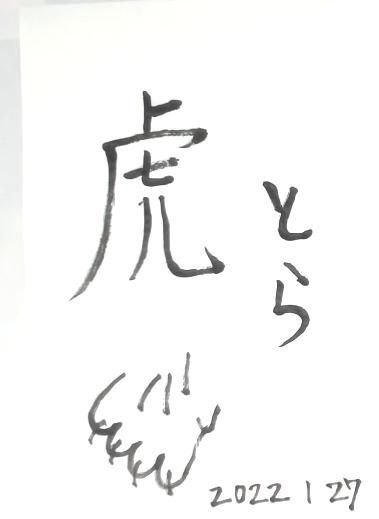 虎
とら
2022 1 27